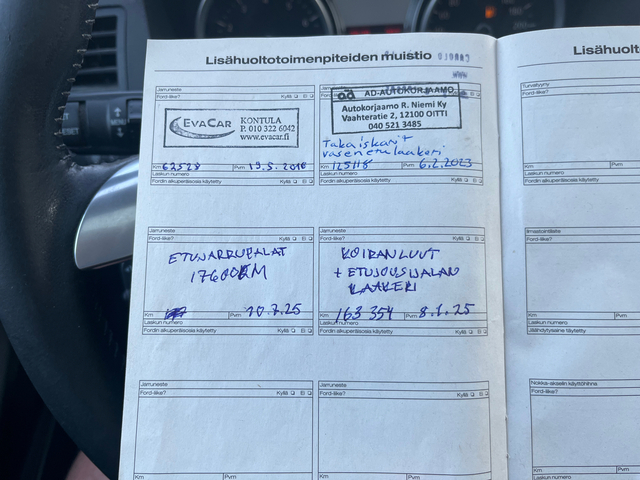 Lisähuoltotoimenpiteiden muistio
Jarruneste
Ford-liike? Kyllä Ei
EVACAR
KONTULA
P. 010 322 6042
www.evacar.fi
Km 62528 Pvm 19.5.2016
Laskun numero
Fordin alkuperäisosia käytetty Kyllä Ei
AD-AUTOKORJAAMO
Autokorjaamo R. Niemi Ky
Vaahteratie 2, 12100 OITTI
040 521 3485
Takaiskarit
vasen etulaakeri
Km 125118 Pvm 6.2.2023
Laskun numero
Fordin alkuperäisosia käytetty Kyllä Ei
Jarruneste
Ford-liike? Kyllä Ei
ETUJARRUPALAT
176000KM
Km Pvm 10.7.25
Laskun numero
Fordin alkuperäisosia käytetty Kyllä Ei
Jarruneste
Ford-liike? Kyllä Ei
KOIRANLUUT
+ ETUJOUSIJALAN
LAAKERI
Km 163 354 Pvm 8.1.25
Laskun numero
Fordin alkuperäisosia käytetty Kyllä Ei
Jarruneste
Ford-liike? Kyllä Ei
Km Pvm
Jarruneste
Ford-liike? Kyllä Ei
Km Pvm
Lisähuolt
Turvatyyny
Ford-liike?
Km
Laskun numero
Fordin alkuperäisosia
Ilmastointilaite
Ford-liike?
Km
Laskun numero
Jäähdytysaine täytetty
Nokka-akselin käyttöhihna
Ford-liike?
Km